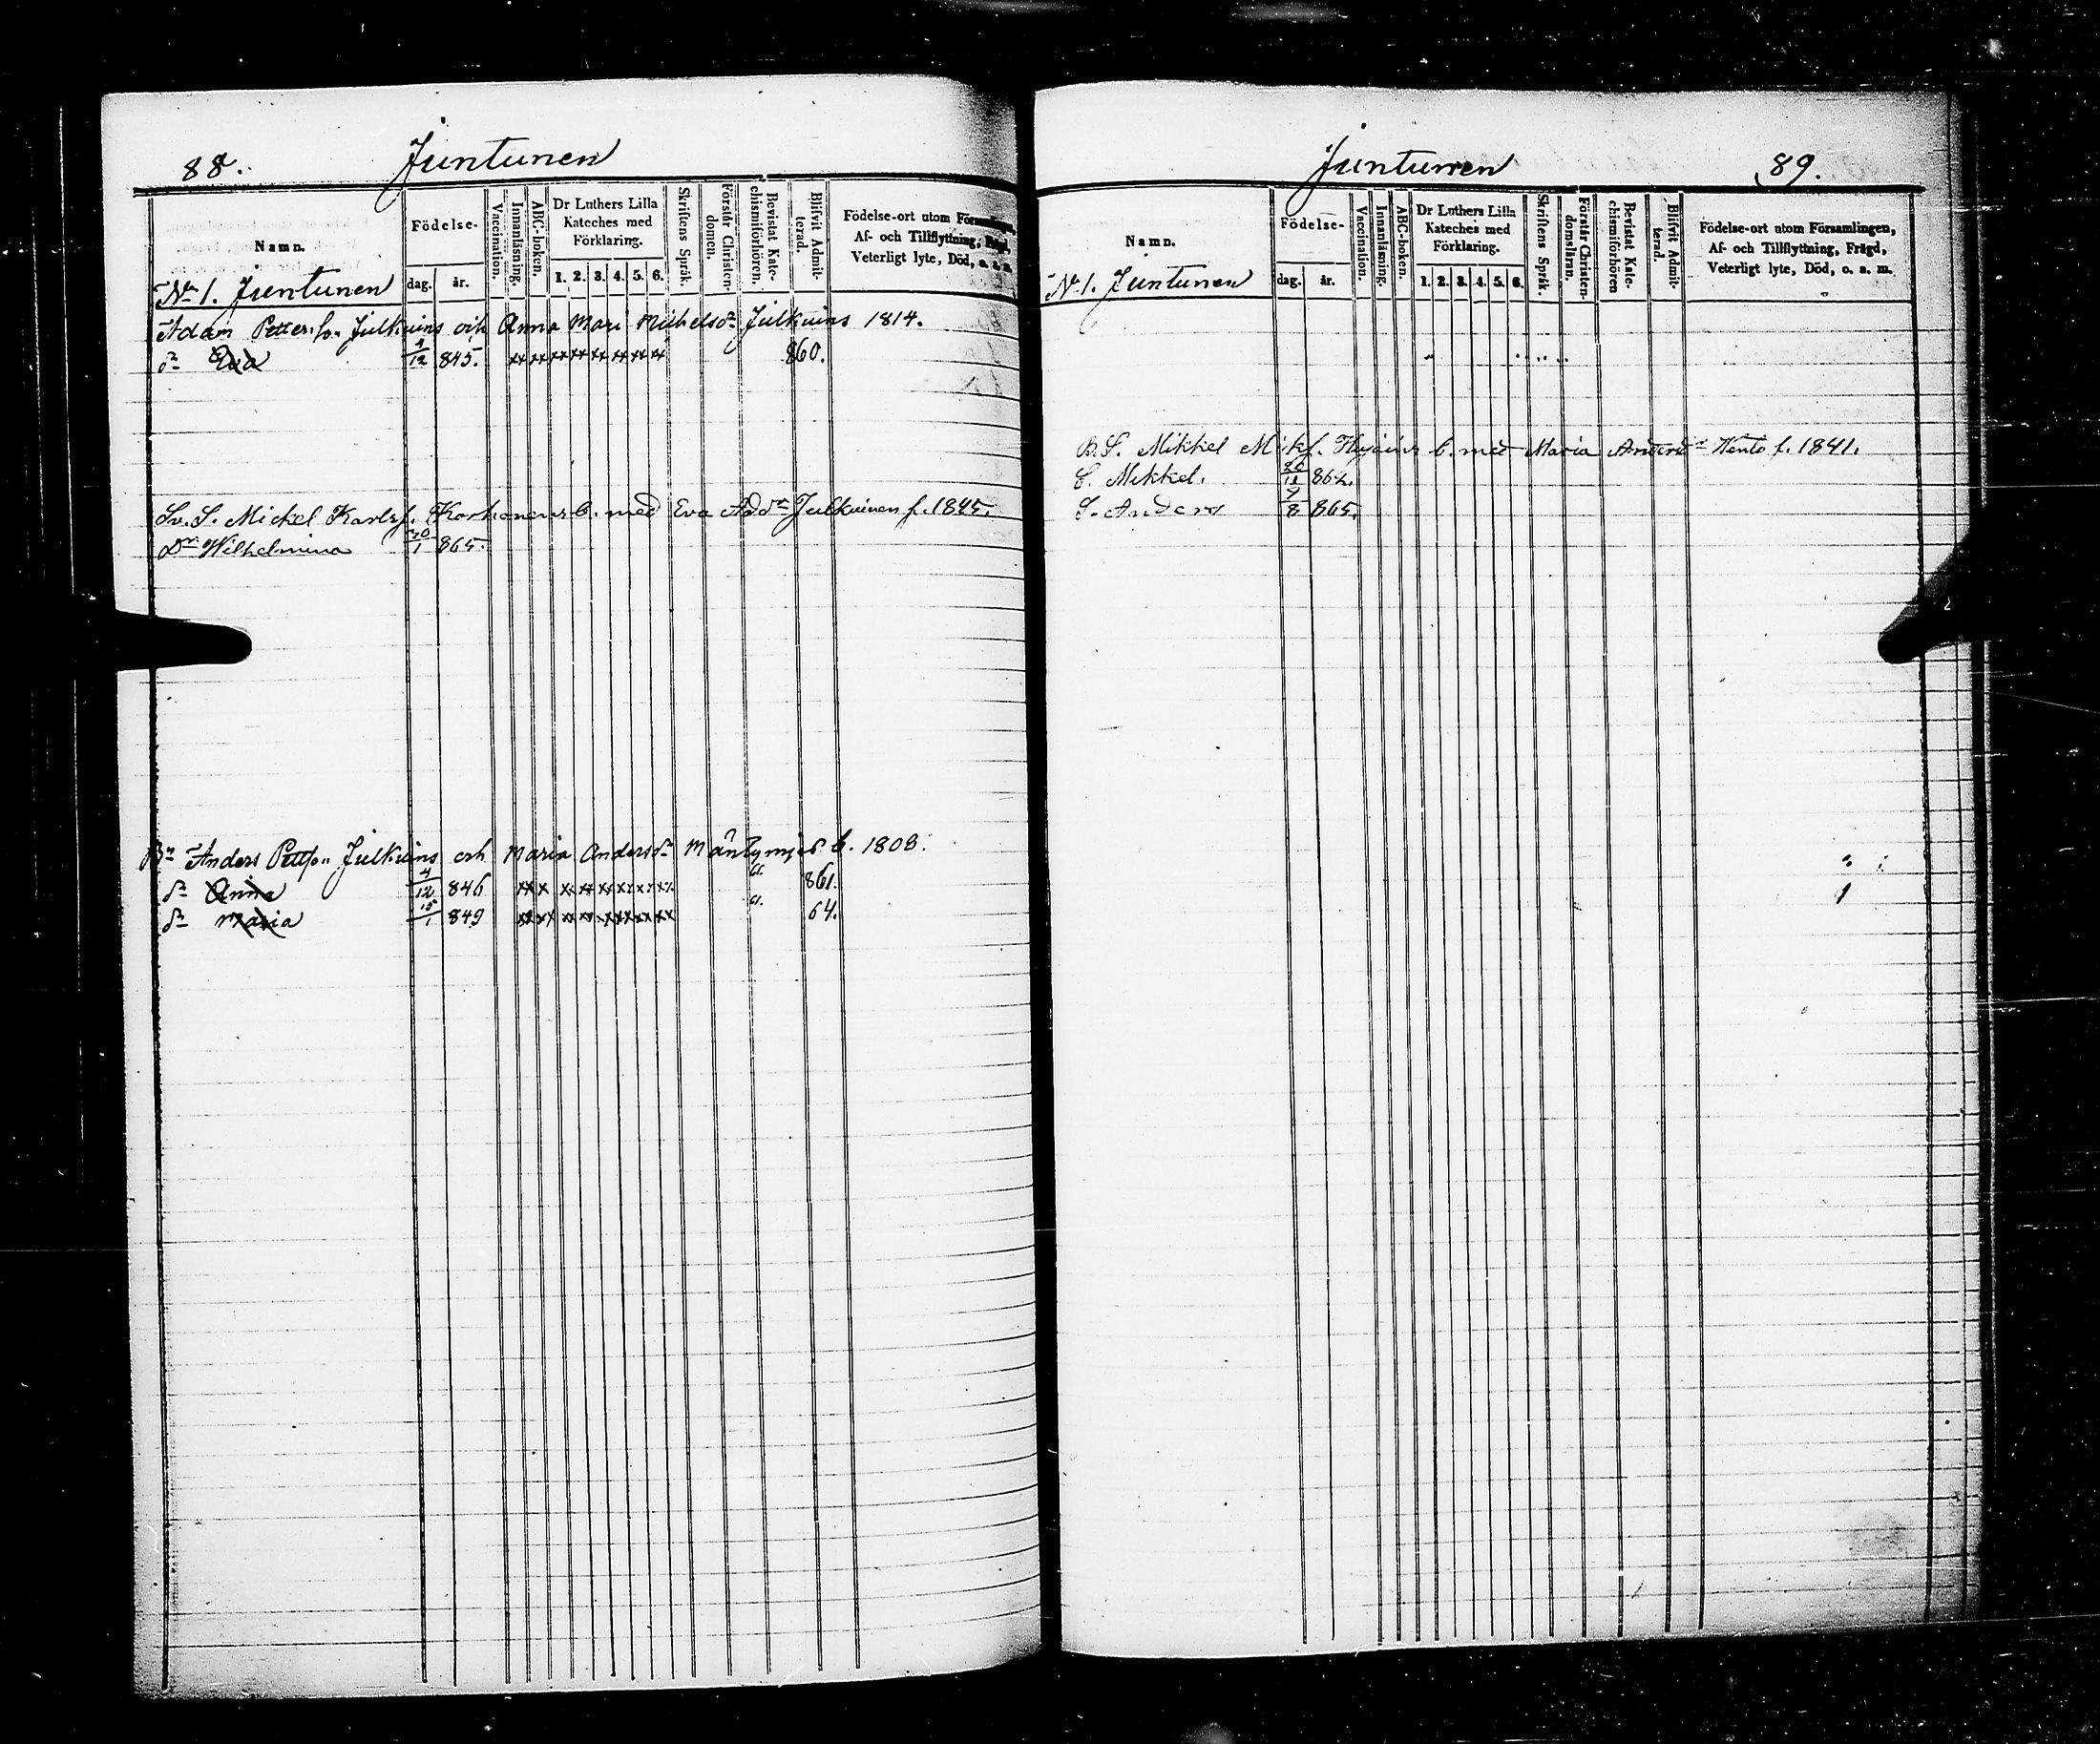 88. Juntunen
Namn.
Födelse-
dag. år.
Vaccination.
Innanläsning.
ABC-boken.
Dr Luthers Lilla
Kateches med
Förklaring.
1. 2. 3. 4. 5. 6.
Skriftens Språk.
Förstår Christen-
domen.
Bevistat Kate-
chismiförhören.
Blifvit Admit-
terad.
Födelse-ort utom Församlingen,
Af- och Tillflyttning, Frägd,
Veterligt lyte, Död, o. a. m.
No 1. Juntunen
Adam Petters. So. Julkuins och Anna Mari Michelsdr Julkuins 1814.
dr Eva 4/12 845. xx xx xx xx xx xx xx xx 860.
Sv. S. Mickel Karlsf. Korhonens b. med Eva Addr Julkuinen f. 1845.
Dr Wilhelmina 20/1 865.
Br Anders Pettso. Julkuins och Maria Andersdr b. 1808.
dr Anna 4/12 846 xx x xx xx xx xx xx xx a. 861.
dr Maria 15/1 849 xx xx xx xx xx xx xx xx a. 64.
Juntunen 89.
Namn.
Födelse-
dag. år.
Vaccination.
Innanläsning.
ABC-boken.
Dr Luthers Lilla
Kateches med
Förklaring.
1. 2. 3. 4. 5. 6.
Skriftens Språk.
Förstår Christen-
domsläran.
Bevistat Kate-
chismiförhören
Blifvit Admit-
terad.
Födelse-ort utom Församlingen,
Af- och Tillflyttning, Frägd,
Veterligt lyte, Död, o. a. m.
No 1. Juntunen
B. S. Mikkel Mikf. b. med Maria Andersdr Kento f. 1841.
S. Mikkel. 20/11 862.
S. Anders 9/8 865.